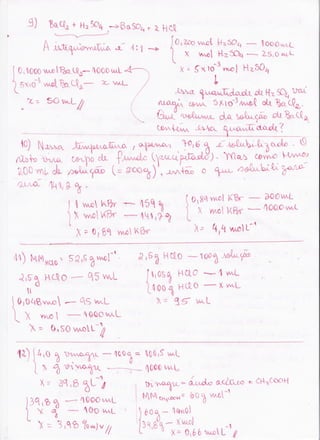 9) BaCl2 + H2SO4 → BaSO4 + 2 HCl
A estequiometria é 1:1 →
{ 0,200 mol H2SO4 — 1000mL
x mol H2SO4 — 25,0 mL
x = 5 x 10⁻³ mol H2SO4
{ 0,1000 mol BaCl2 — 1000 mL
5x10⁻³ mol BaCl2 — x mL
x = 50 mL //
essa quantidade de H2SO4 vai
reagir com 5x10⁻³ mol de BaCl2.
Que volume da solução de BaCl2
contém essa quantidade?
10) Nessa temperatura, apenas 70,6 g é solubilizado. O
resto vira corpo de fundo (precipitado). Mas como temos
200 mL de solução (= 200g), então o que solubilizará
será 141,2 g.
{ 1 mol KBr — 159 g
x mol KBr — 141,2 g
x = 0,89 mol KBr
{ 0,89 mol KBr — 200mL
x mol KBr — 1000mL
x = 4,4 mol L⁻¹
11) MM HClO = 52,5 g mol⁻¹.
2,5 g HClO — 100g solução
2,5g HClO — 95 mL
{ 1,05g HClO — 1 mL
100 g HClO — x mL
x = 95 mL
{ 0,048 mol — 95 mL
x mol — 1000 mL
x = 0,50 mol L⁻¹ //
12) { 4,0 g vinagre — 100g = 100,5 mL
x g vinagre — 1000 mL
x = 39,8 g L⁻¹ //
vinagre = ácido acético = CH3COOH
MM CH3COOH = 60 g mol⁻¹
{ 39,8 g — 1000 mL
x g — 100 mL
x = 3,98 % m/v //
{ 60 g — 1 mol
39,8 g — x mol
x = 0,66 mol L⁻¹ //